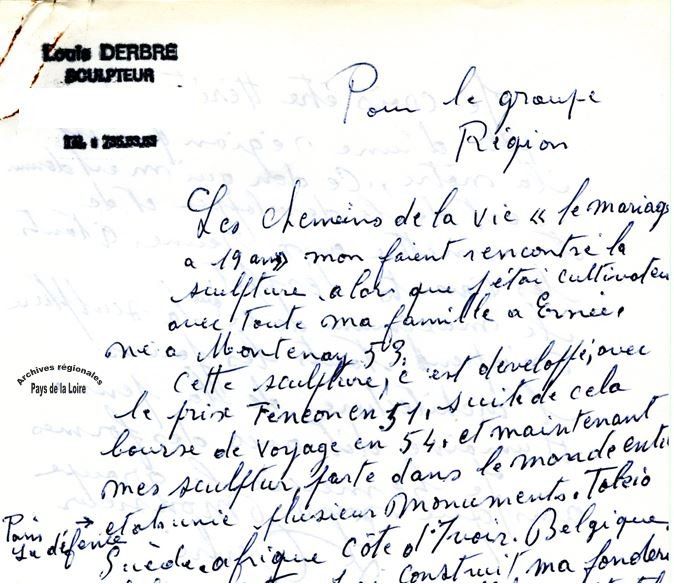 Louis DERBRÉ
SCULPTEUR
Tél : 735.53.53
Pour le groupe
Région
Les chemeins de la vie « le mariage
a 19 ans » mon faient rencontré la
sculpture alors que j'étai cultivateu
avec toute ma famille a Ernée.
né a Montenay 53.
Cette sculpture, c'est développé, avec
le prix Fénéon en 51, suite de cela
bourse de voyage en 54. et maintenant
mes sculptur parte dans le monde enti
etats unie plusieur Monuments. Tokio
Paris
La défence
Suède. afrique côte d'Ivoir. Belgique
construit ma fonderi
Archives régionales
Pays de la Loire